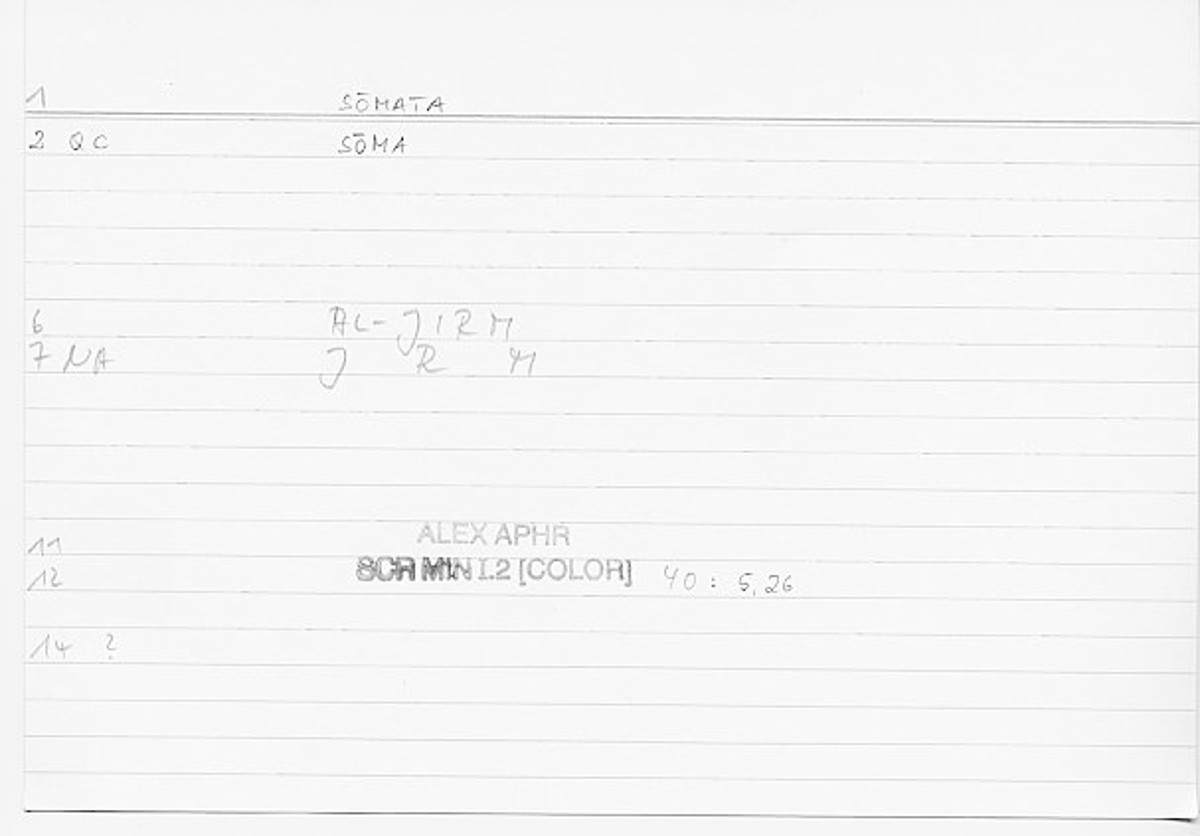 1 SŌMATA
2 QC SŌMA
6 AL-JIRM
7 NA J R M
11 ALEX APHR
12 SCR MIN I.2 [COLOR] 40 : 5,26
14 ?